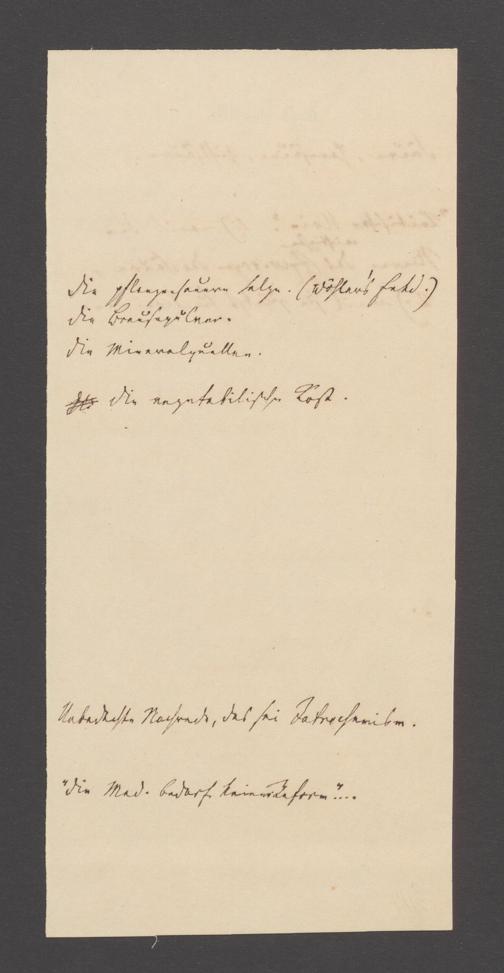 die pflanzensauren Salze. (Wöhler's Entd.)
die Brausepulver.
die Mineralquellen.
die vegetabilische Kost.
Unbedachte Nachrede, das sei Iatrochemism.
"die Med. bedarf keiner Reform"...